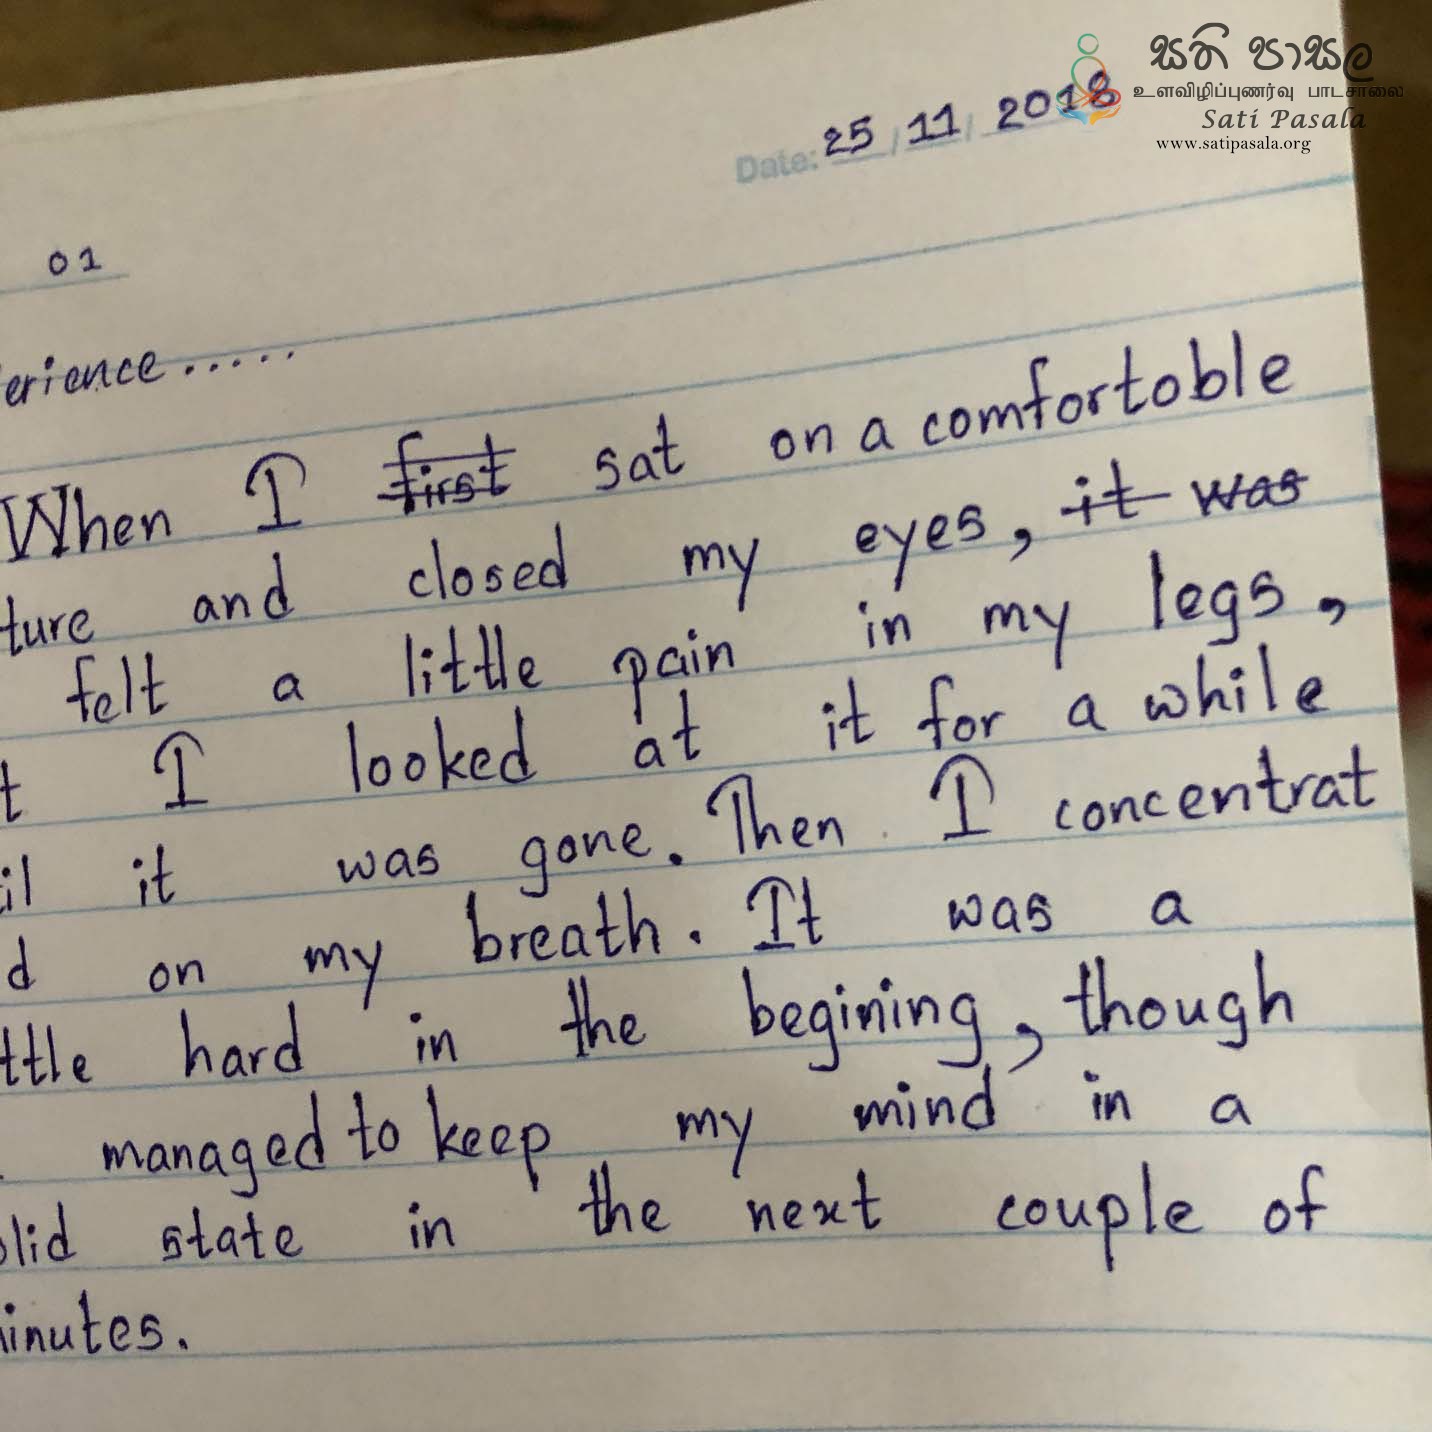 සති පාසල
உளவிழிப்புணர்வு பாடசாலை
Sati Pasala
www.satipasala.org
Date: 25 / 11 / 2018
01
erience.....
When I first sat on a comfortoble
ture and closed my eyes, it was
felt a little pain in my legs,
t I looked at it for a while
il it was gone. Then I concentrat
d on my breath. It was a
ttle hard in the begining, though
managed to keep my mind in a
lid state in the next couple of
inutes.